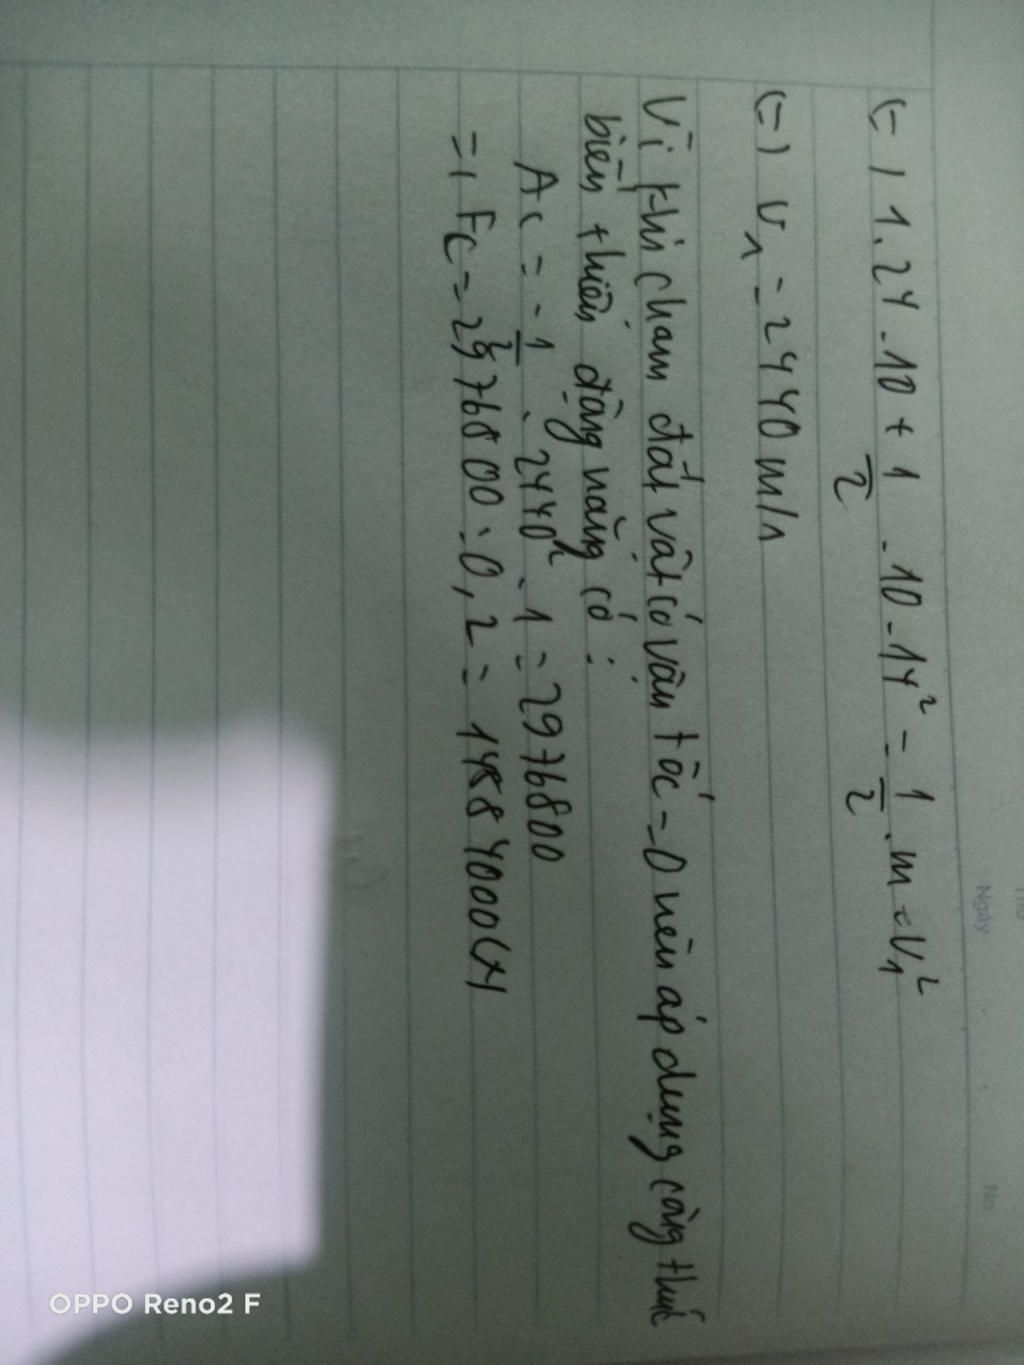 (=) 1.24.10 + 1/2 .10.14² = 1/2 .m.v₁²
(=) v₁ = 2440 m/s
Vì khi chạm đất vật có vận tốc = 0 nên áp dụng công thức
biến thiên động năng có :
Ac = -1/2 . 2440² . 1 = 2976800
=) Fc = 2976800 : 0,2 = 1488 4000 (N)
Ngày
No.
OPPO Reno2 F